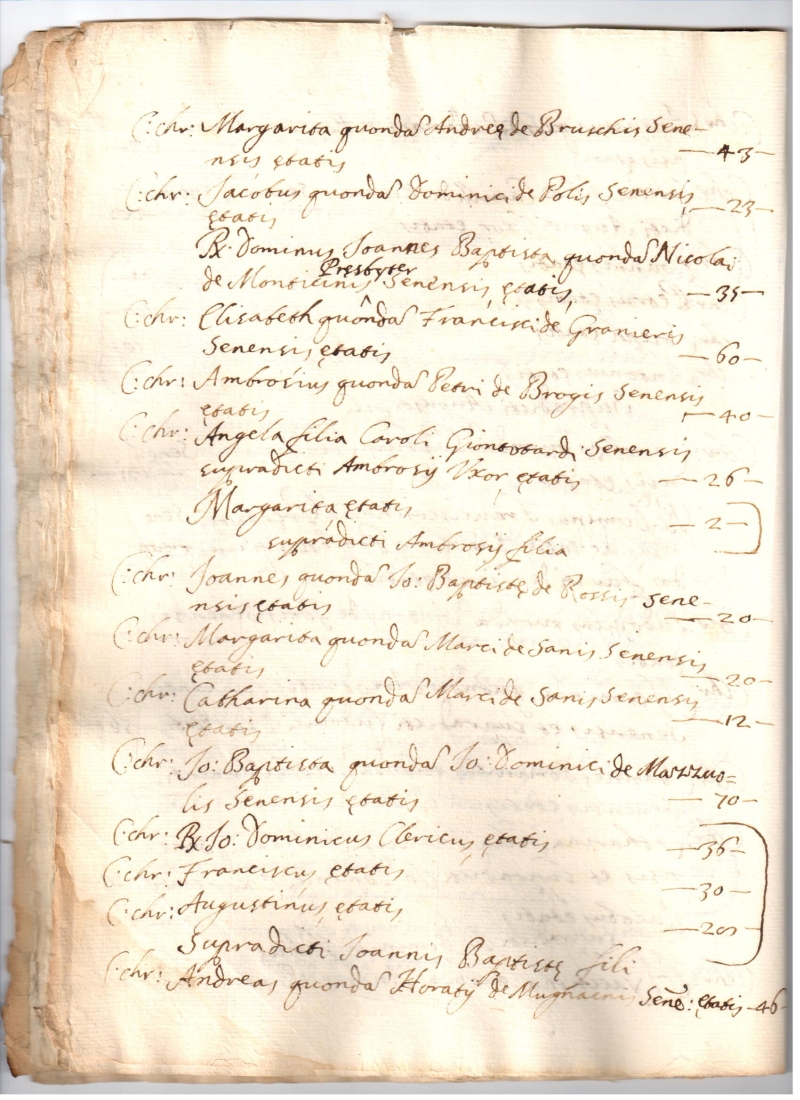 C: chr: Margarita quonda᷉ Andreę de Bruschis Sene-
nsis ętatis — 43 —
C: chr: Jacobus quonda᷉ Dominici de Polis Senensis
ętatis — 23 —
R. Dominus Joannes Baptista quonda᷉ Nicolai
Presbyter
de Monticinis Senensis, ętatis, — 35 —
C: chr: Elisabeth quonda᷉ Francisci de Granieris
Senensis ętatis — 60 —
C: chr: Ambrosius quonda᷉ Petri de Brogis Senensis
ętatis — 40 —
C: chr: Angela filia Caroli Senensis
supradicti Ambrosij Uxor ętatis — 26 —
Margarita ętatis — 2 —
supradicti Ambrosij filia
C: chr: Joannes quonda᷉ Jo: Baptistę de Rossis Sene-
nsis ętatis — 20 —
C: chr: Margarita quonda᷉ Marci de Sanis Senensis
ętatis — 20 —
C: chr: Catharina quonda᷉ Marci de Sanis Senensis
ętatis — 12 —
C: chr: Jo: Baptista quonda᷉ Jo: Dominici de Mazzuo=
lis Senensis ętatis — 70 —
C: chr: R. Jo: Dominicus Clericus ętatis — 36 —
C: chr: Franciscus ętatis — 30 —
C: chr: Augustinus ętatis
Supradicti Joannis Baptistę fili
C: chr: Andreas quonda᷉ Horatij de Mughainis Sene᷉: ętatis — 46